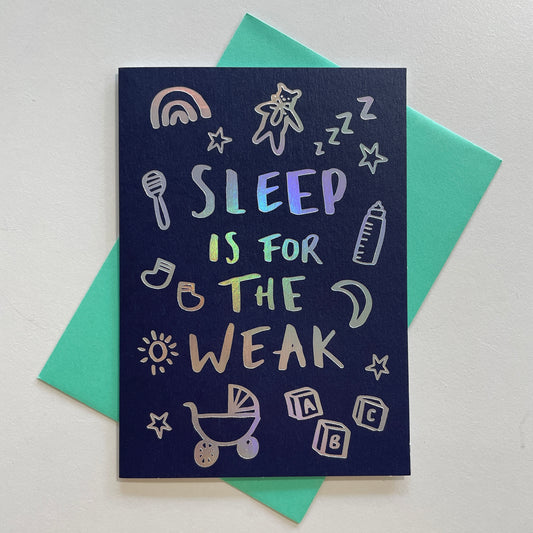 Z Z Z Z
SLEEP
IS FOR
THE
WEAK
A
B
C